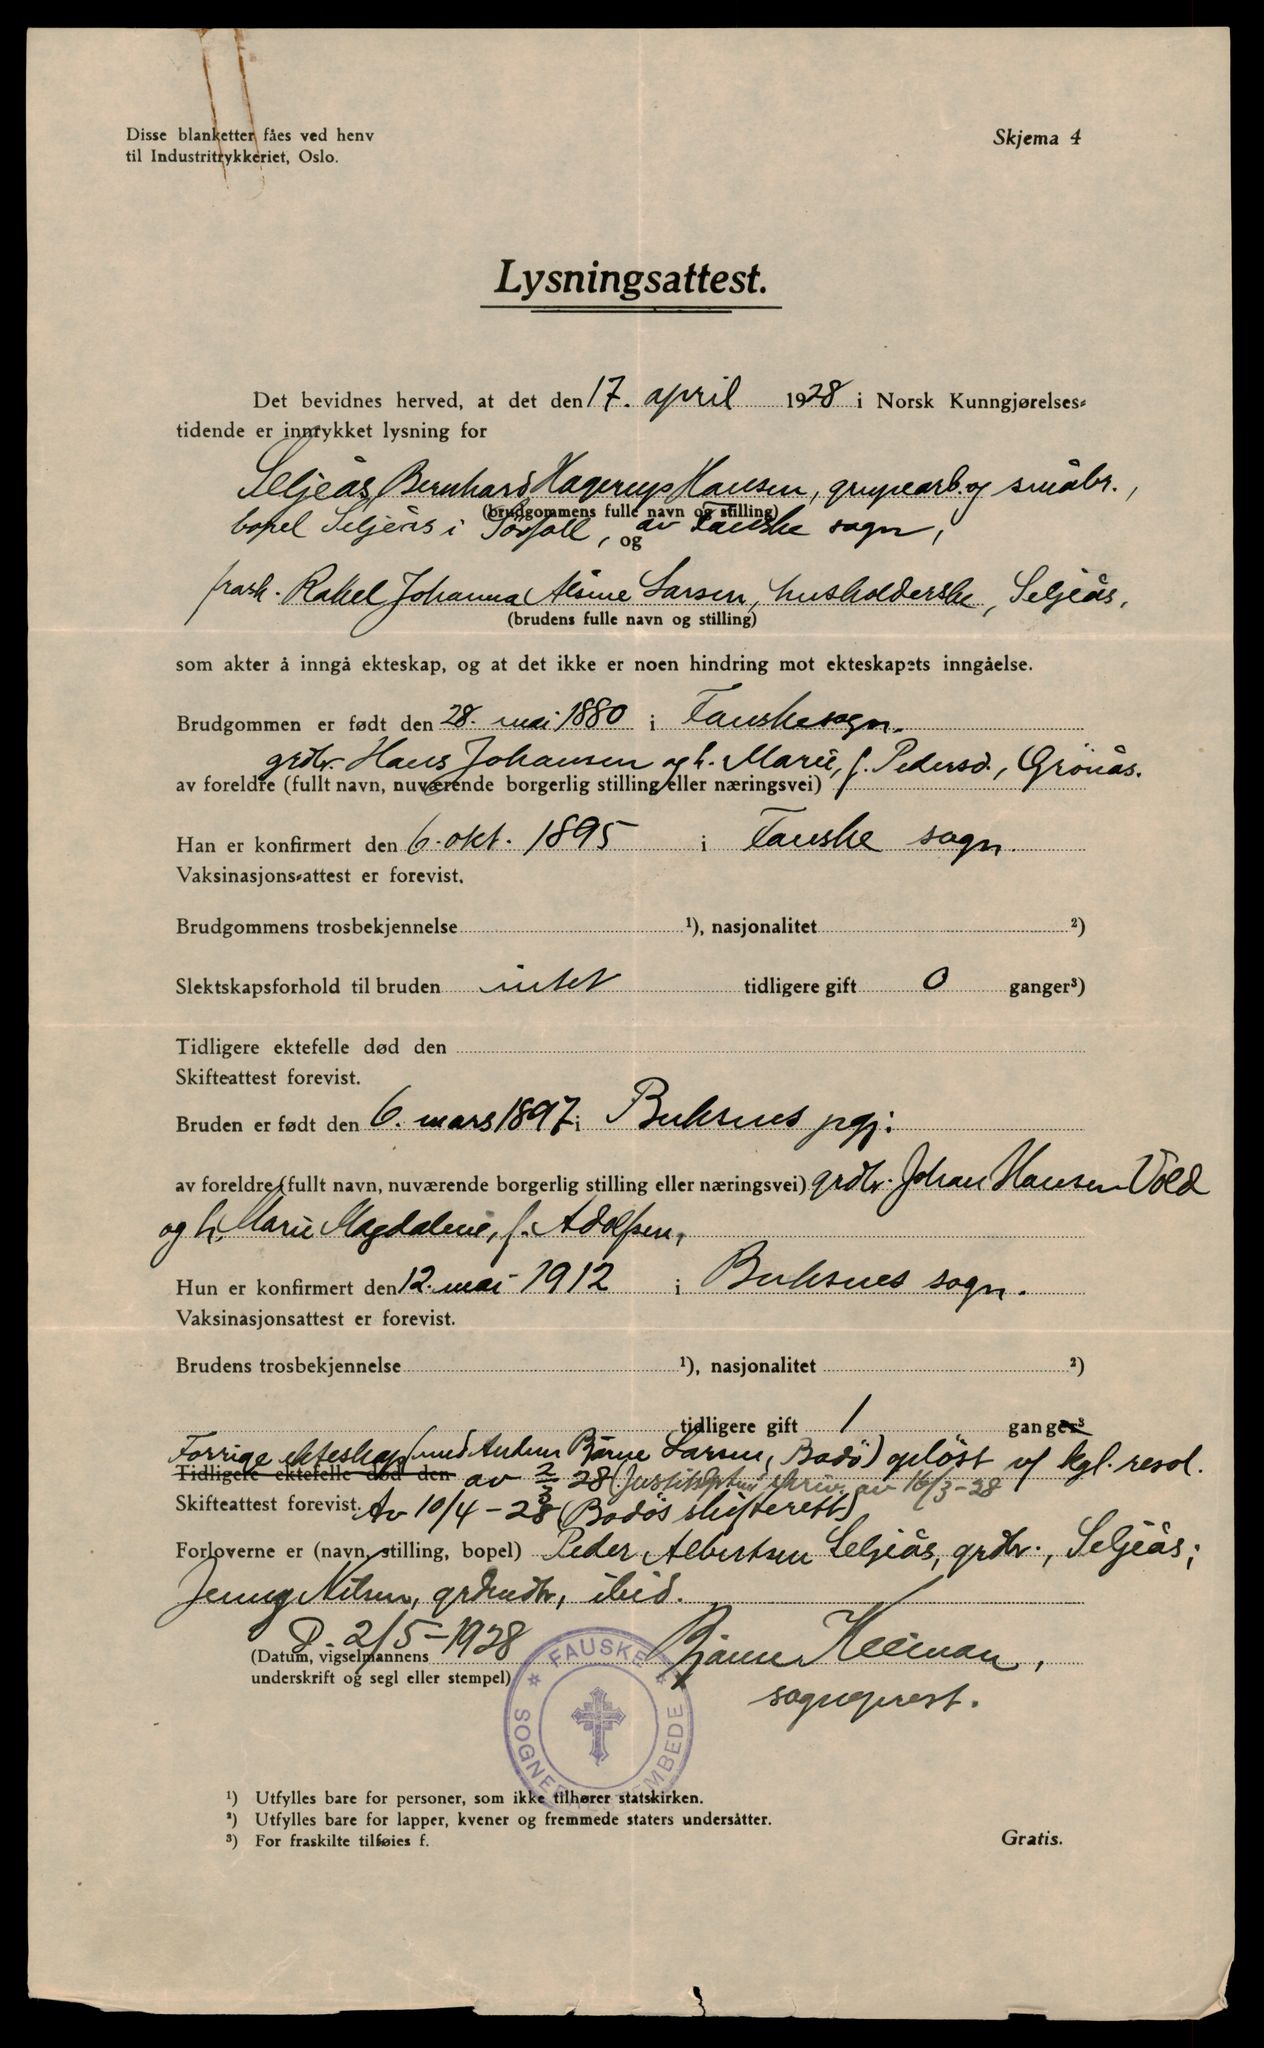 Disse blanketter fåes ved henv
til Industritrykkeriet, Oslo.
Skjema 4
Lysningsattest.
Det bevidnes herved, at det den 17. april 1928 i Norsk Kunngjørelses-
tidende er innrykket lysning for
Seljeås, Bernhard Hagerup Hansen, grupearb. og småbr.,
(brudgommens fulle navn og stilling)
bopel Seljeås i Sørfoll, av Fauske sogn,
og
frask. Rakel Johanna Alsine Larsen, husholderske, Seljeås,
(brudens fulle navn og stilling)
som akter å inngå ekteskap, og at det ikke er noen hindring mot ekteskapets inngåelse.
Brudgommen er født den 28. mai 1880 i Fauske sogn.
grdbr. Hans Johansen og h. Marie, f. Pedersd., Grönås.
av foreldre (fullt navn, nuværende borgerlig stilling eller næringsvei)
Han er konfirmert den 6. okt. 1895 i Fauske sogn.
Vaksinasjons-attest er forevist.
Brudgommens trosbekjennelse ¹), nasjonalitet ²)
Slektskapsforhold til bruden intet tidligere gift 0 ganger³)
Tidligere ektefelle død den
Skifteattest forevist.
Bruden er født den 6. mars 1897 i Buksnes pgj.
av foreldre (fullt navn, nuværende borgerlig stilling eller næringsvei) grdbr. Johan Hansen Vold
og h. Marie Magdalene, f. Adolfsen,
Hun er konfirmert den 12. mai 1912 i Buksnes sogn.
Vaksinasjonsattest er forevist.
Brudens trosbekjennelse ¹), nasjonalitet ²)
tidligere gift 1 ganger³
Forrige ekteskap (med Bjarne Larsen, Bodö) oplöst v/ kgl. resol.
Tidligere ektefelle død den av 2/3 28 (Justitsdptm. skriv. av 16/3-28
Skifteattest forevist. Av 10/4-28 (Bodös skifterett)
Forloverne er (navn, stilling, bopel) Peder Albertsen Seljeås, grdbr., Seljeås;
Jenny Nilsen, ibid.
2/5-1928 Bjarne
(Datum, vigselmannens
underskrift og segl eller stempel)
sogneprest.
FAUSKE SOGNEPRESTEMBEDE
¹) Utfylles bare for personer, som ikke tilhører statskirken.
²) Utfylles bare for lapper, kvener og fremmede staters undersåtter.
³) For fraskilte tilføies f.
Gratis.